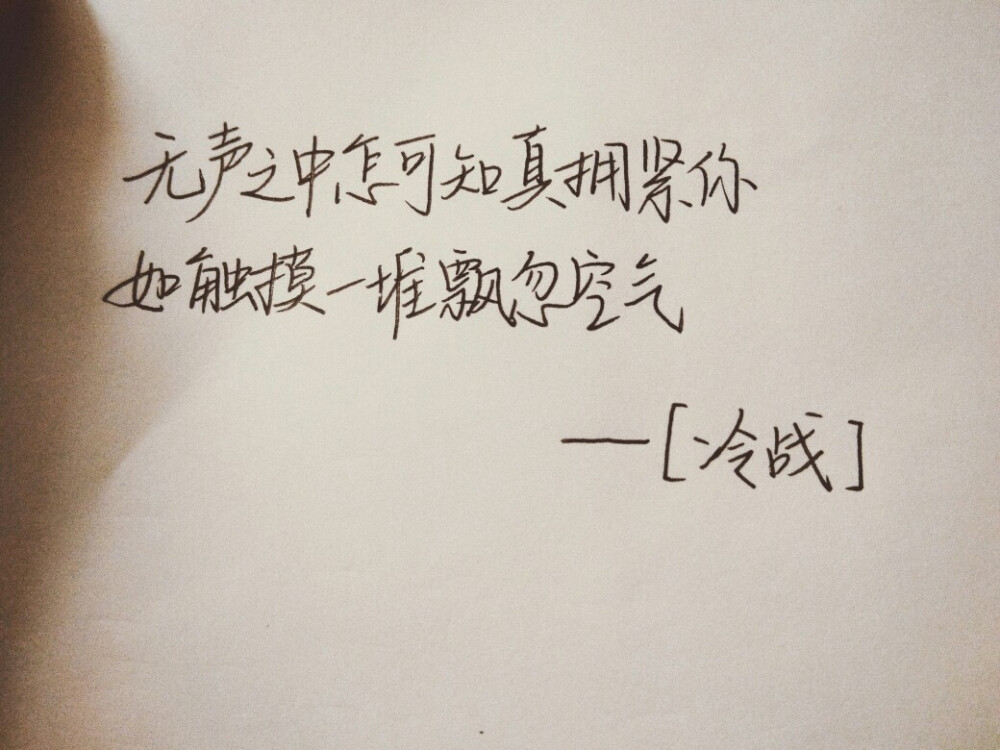 无声之中怎可知真拥紧你
如触摸一堆飘忽空气
——[冷战]